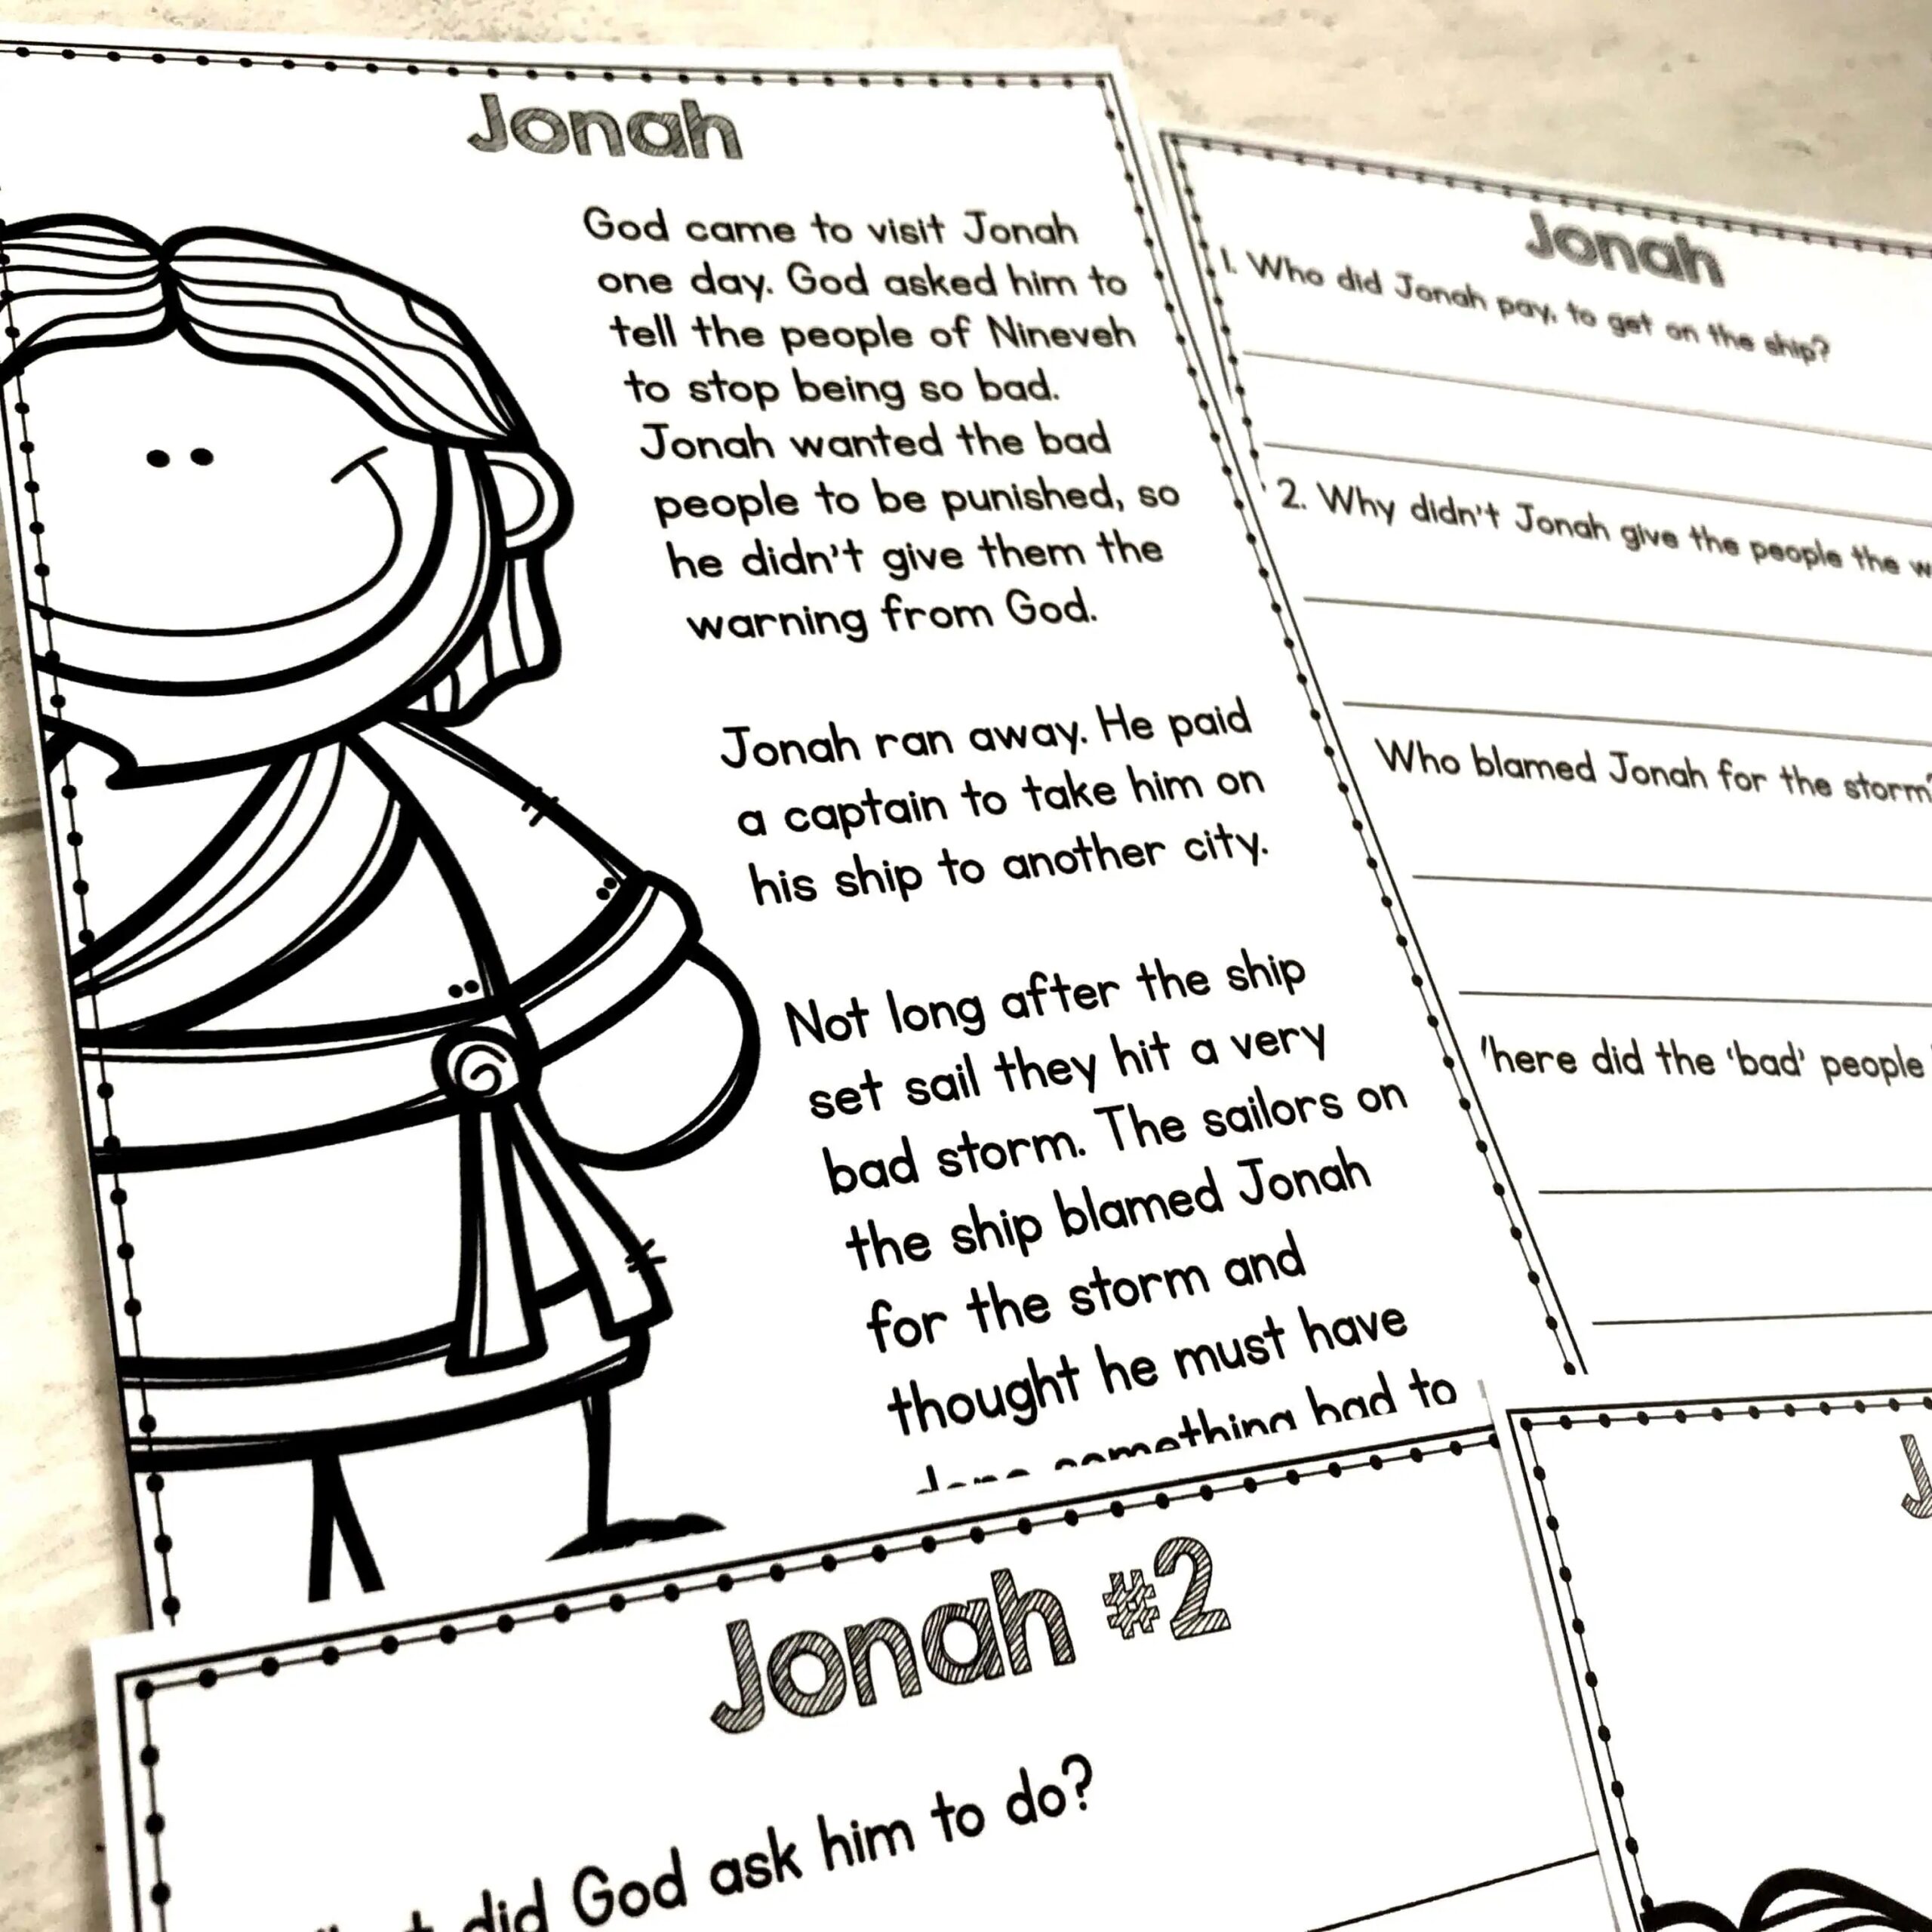 Jonah
God came to visit Jonah
one day. God asked him to
tell the people of Nineveh
to stop being so bad.
Jonah wanted the bad
people to be punished, so
he didn't give them the
warning from God.
Jonah ran away. He paid
a captain to take him on
his ship to another city.
Not long after the ship
set sail they hit a very
bad storm. The sailors on
the ship blamed Jonah
for the storm and
thought he must have
something bad to
Jonah
1. Who did Jonah pay, to get on the ship?
2. Why didn't Jonah give the people the w
Who blamed Jonah for the storm?
here did the 'bad' people
Jonah #2
did God ask him to do?
J